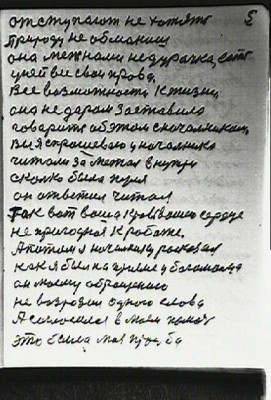 5
отступают не хотят
природу не обманиш
она меж нами не дурачка, есть
у ней все свои права
Все возможности к жизни,
она не даром заставила
говорить об этом с начальником,
Вы я спрашеваю у начальника
читали за метал внутри
сколко была пуля
он ответил читал
Так вот ваша кров вашего сердце
не пригодная к работе.
А потом я начальнику росказал
как я был на приёме у
он моему обращению
не возрозил одного слова
Я согласился в моей помоч
это была моя прозба